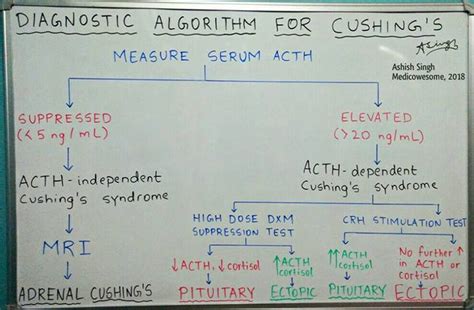 DIAGNOSTIC ALGORITHM FOR CUSHING'S
ASingh
Ashish Singh
Medicowesome, 2018
MEASURE SERUM ACTH
SUPPRESSED
(<5 ng/mL)
ELEVATED
(>20 ng/mL)
ACTH-independent
Cushing's syndrome
ACTH-dependent
Cushing's syndrome
HIGH DOSE DXM
SUPPRESSION TEST
CRH STIMULATION TEST
MRI
↓ACTH, ↓cortisol
↑ACTH
cortisol
↑↑ACTH
cortisol
No further ↑
in ACTH or
cortisol
ADRENAL CUSHING'S
PITUITARY
ECTOPIC
PITUITARY
ECTOPIC